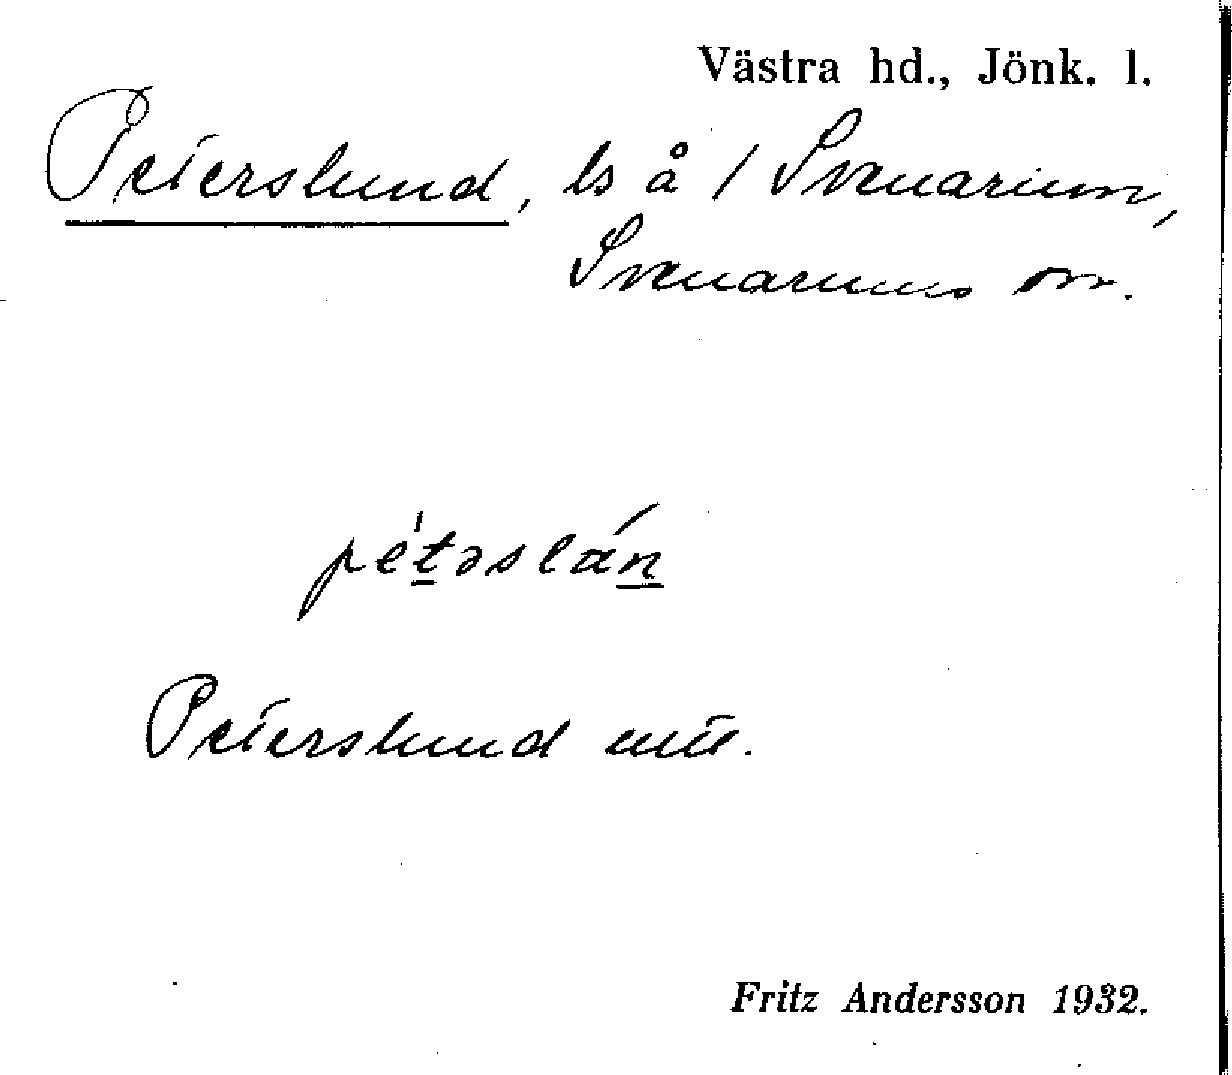 Västra hd., Jönk. l.
Peterslund, ls å / Svenarum,
Svenarums sn.
pétəslán
Peterslund
Fritz Andersson 1932.